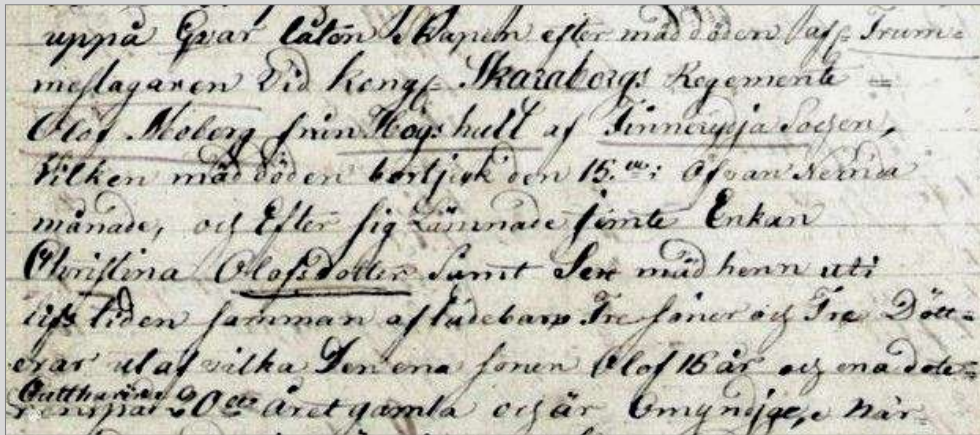 uppå Qvar låtenskapen efter mäd döden aff: Trum=
meslagaren Vid Kongl: Skaraborgs Regemente =
Olof Moberg från Högshult af Finnerydja Socken,
Vilken mäd döden bortjick den 15:de i Ofvan Nemda
månade, och Efter sig Lämnade jemte Enkan
Christina Olofsdotter Samt Sex mäd henn uti
lifs tiden samman aflade barn Tre söner och Tre Dött=
erar utaf vilka Den ena sonen Olof 15 år och ena dote=
Året gamla och är Omyndige, e när=